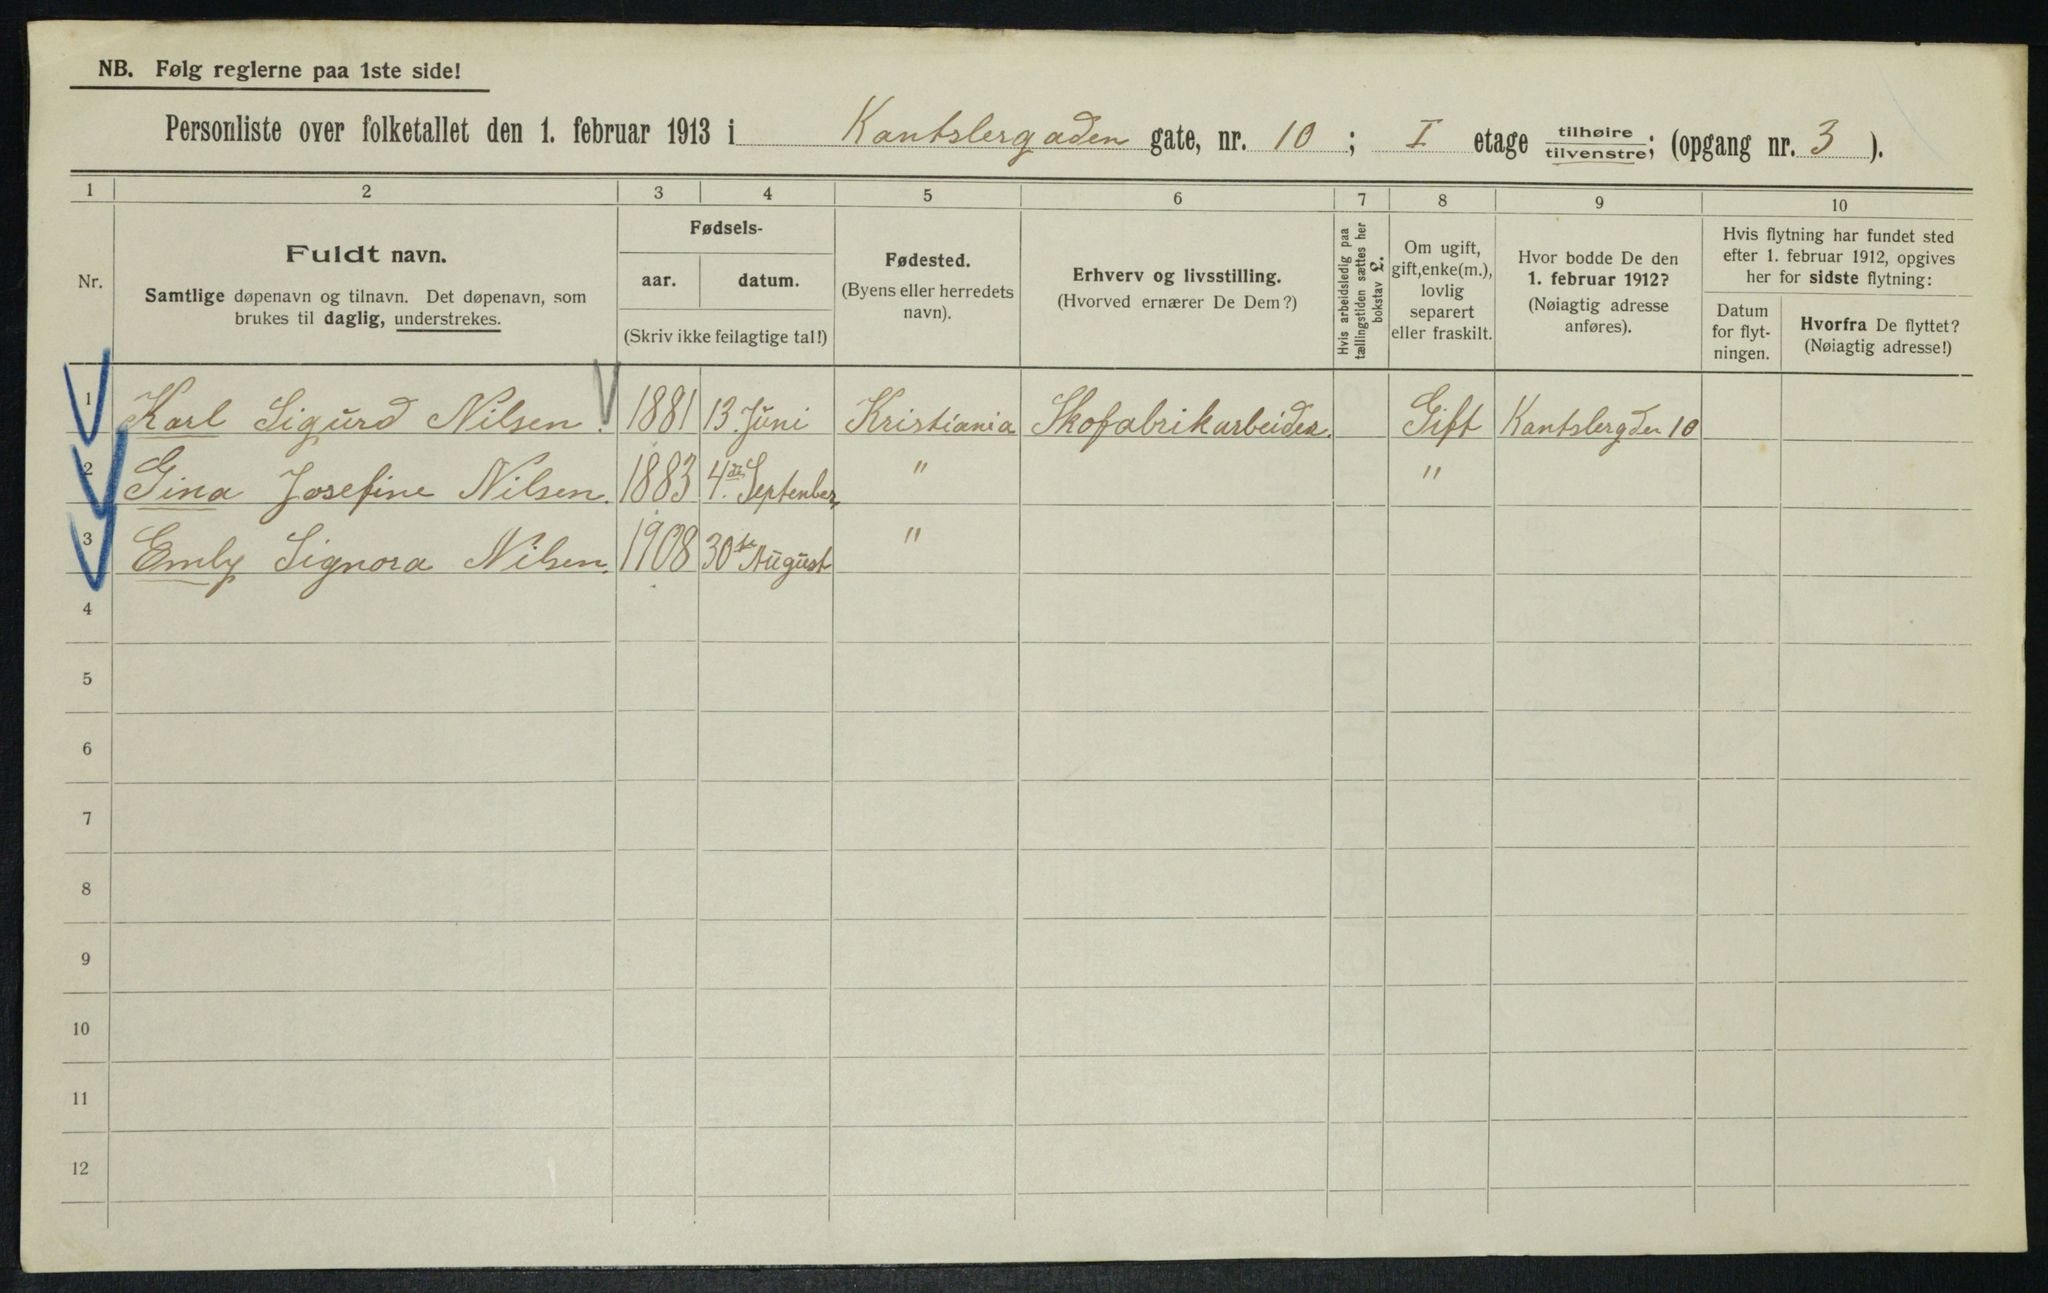 NB. Følg reglerne paa 1ste side!
Personliste over folketallet den 1. februar 1913 i Kantslergaden gate, nr. 10; I etage tilhøire tilvenstre; (opgang nr. 3).
1 2 3 4 5 6 7 8 9 10
Nr.
Fuldt navn.
Samtlige døpenavn og tilnavn. Det døpenavn, som
brukes til daglig, understrekes.
Fødsels-
aar. datum.
(Skriv ikke feilagtige tal!)
Fødested.
(Byens eller herredets
navn).
Erhverv og livsstilling.
(Hvorved ernærer De Dem?)
Hvis arbeidsledig paa
tællingstiden sættes her
bokstav L.
Om ugift,
gift, enke(m.),
lovlig
separert
eller fraskilt.
Hvor bodde De den
1. februar 1912?
(Nøiagtig adresse
anføres).
Hvis flytning har fundet sted
efter 1. februar 1912, opgives
her for sidste flytning:
Datum
for flyt-
ningen.
Hvorfra De flyttet?
(Nøiagtig adresse!)
1 Karl Sigurd Nilsen. 1881 13. Juni Kristiania Skofabrikarbeider. Gift Kantslergden 10
2 Gina Josefine Nilsen. 1883 4de September, " "
3 Emly Signora Nilsen. 1908 30te August "
4
5
6
7
8
9
10
11
12